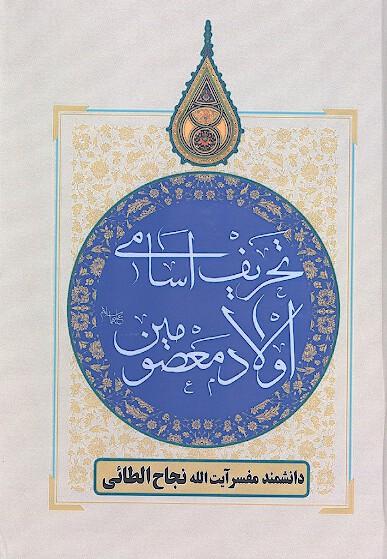 تحریف اسامی
اولاد معصومین
دانشمند مفسر آیت الله نجاح الطائی